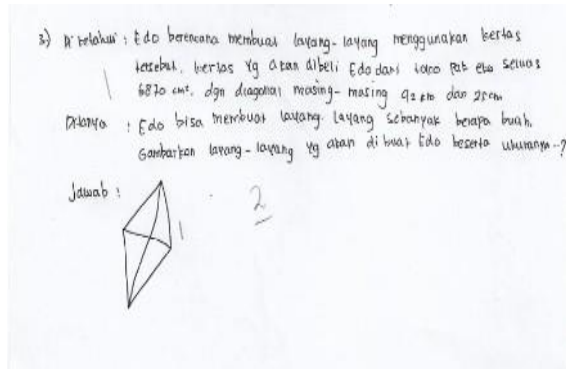 3) Diketahui : Edo berencana membuat layang-layang menggunakan kertas
tersebut. kertas yg akan dibeli Edo dari toko Pak eko seluas
6870 cm², dgn diagonal masing-masing 92 cm dan 25 cm
Ditanya : Edo bisa membuat layang-layang sebanyak berapa buah.
Gambarkan layang-layang yg akan di buat Edo beserta ukuranya..?
Jawab :
2